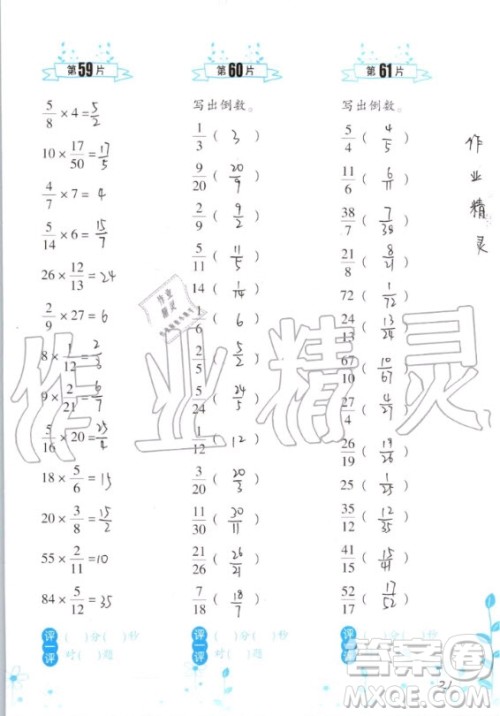 第59片
5/8 × 4 = 5/2
10 × 17/50 = 17/5
4/7 × 7 = 4
5/14 × 6 = 15/7
26 × 12/13 = 24
2/9 × 27 = 6
8 × 1/12 = 2/3
9 × 2/21 = 6/7
5/16 × 20 = 25/4
18 × 5/6 = 15
20 × 3/8 = 15/2
55 × 2/11 = 10
84 × 5/12 = 35
评一评
( )分( )秒
对( )题
第60片
写出倒数。
1/3 ( 3 )
9/20 ( 20/9 )
2/9 ( 9/2 )
5/11 ( 11/5 )
14 ( 1/14 )
1/6 ( 6 )
2/5 ( 5/2 )
5/24 ( 24/5 )
1/12 ( 12 )
3/20 ( 20/3 )
11/30 ( 30/11 )
21/26 ( 26/21 )
7/18 ( 18/7 )
评一评
( )分( )秒
对( )题
第61片
写出倒数。
5/4 ( 4/5 )
11/6 ( 6/11 )
38/7 ( 7/38 )
21/8 ( 8/21 )
72 ( 1/72 )
24/13 ( 13/24 )
67/10 ( 10/67 )
27/4 ( 4/27 )
26/19 ( 19/26 )
25 ( 1/25 )
35/12 ( 12/35 )
41/15 ( 15/41 )
52/17 ( 17/52 )
作业精灵
作业精灵
作业精灵
21
答案圈
MXQE.COM